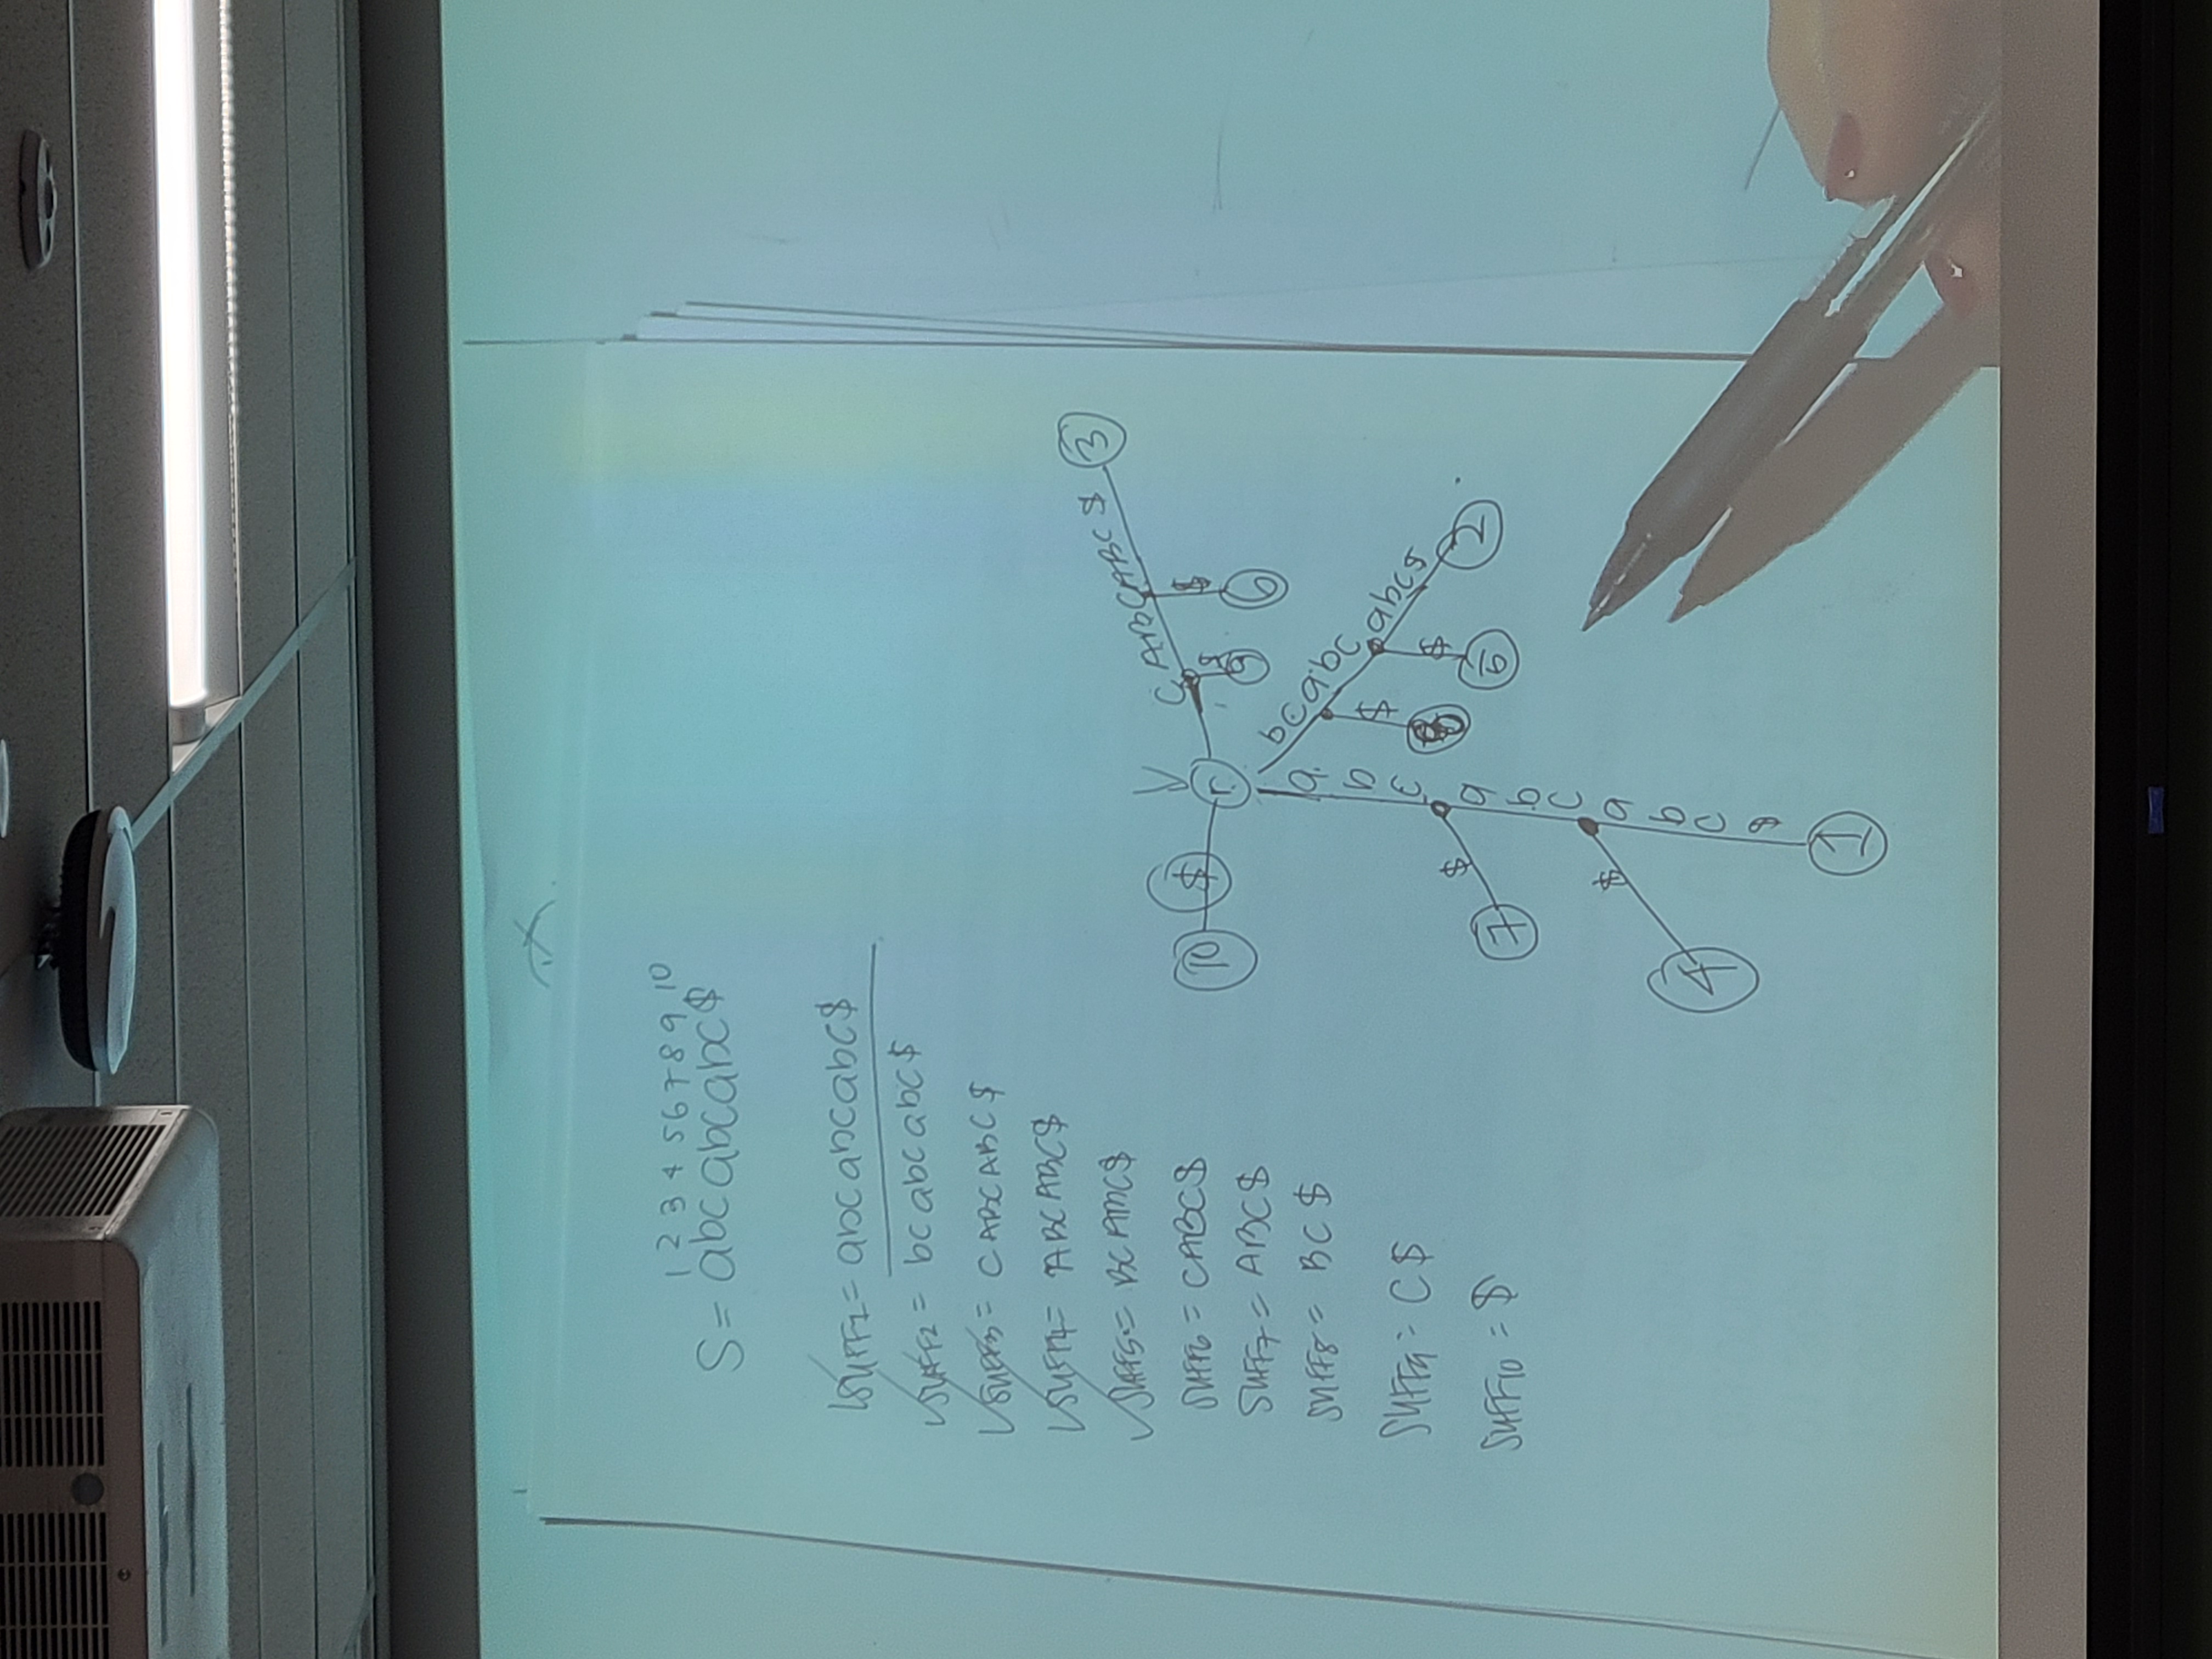 1 2 3 4 5 6 7 8 9 10
S = abcabcabc$
SUFF1 = abcabcabc$
SUFF2 = bcabcabc$
SUFF3 = CABCABC$
SUFF4 = ABCABC$
SUFF5 = BCABC$
SUFF6 = CABC$
SUFF7 = ABC$
SUFF8 = BC$
SUFF9 = C$
SUFF10 = $
10 $ r
C ABC ABC $ 3
$ 9
$ 6
bc abc abc$ 2
$
$ 5
a b c a b c a b c $ 1
$ 7
$ 4